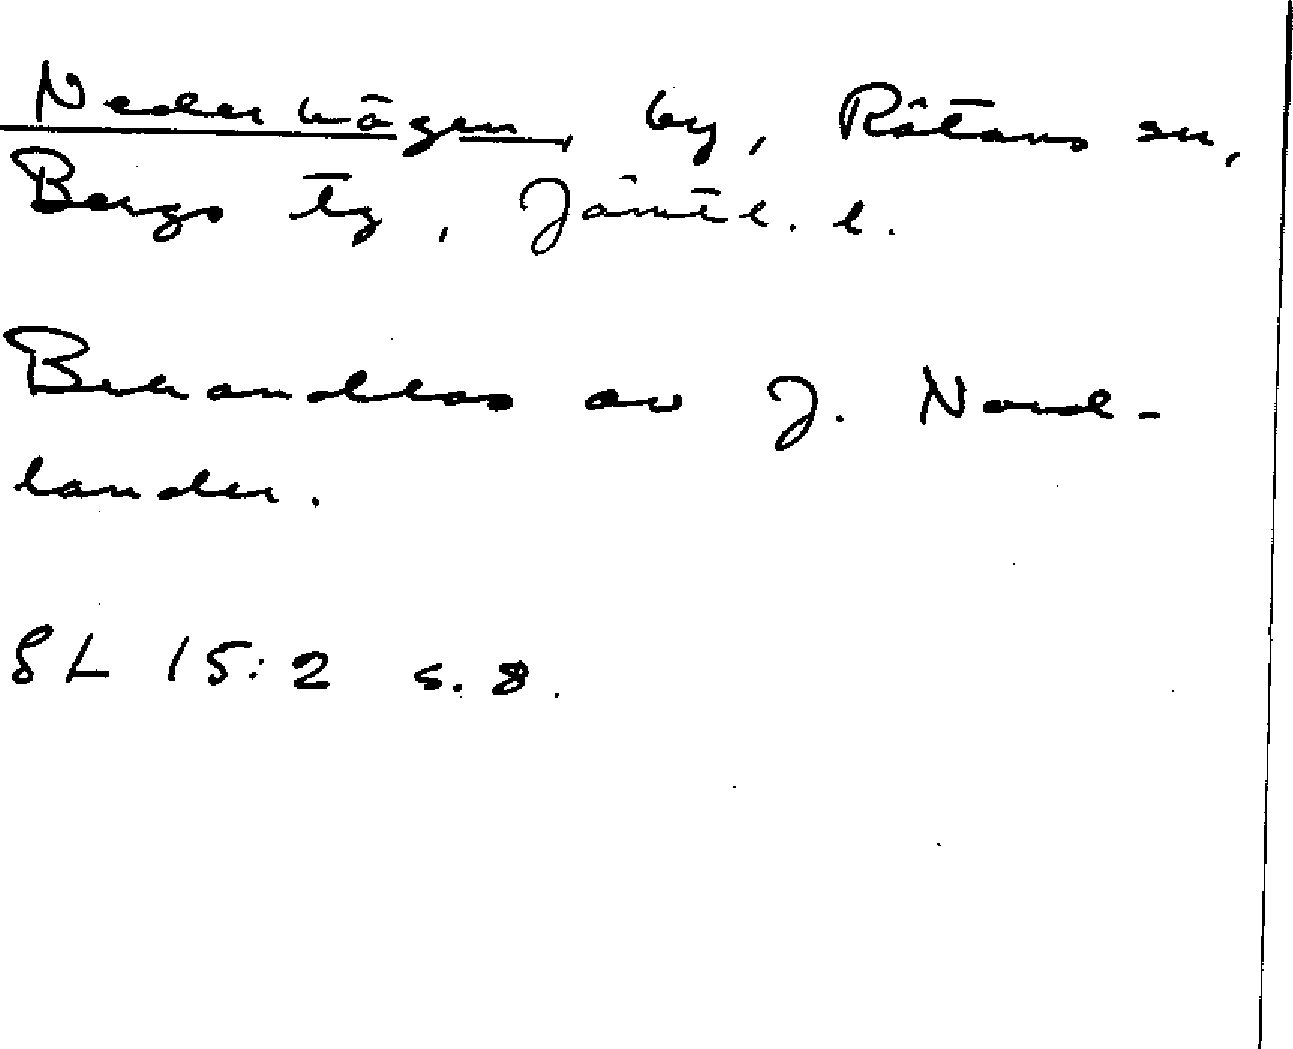 Nederhögen, by, Rätans sn,
Bergs tg, Jämtl. l.
Behandlas av J. Nord-
lander.
SL 15:2 s. 8.